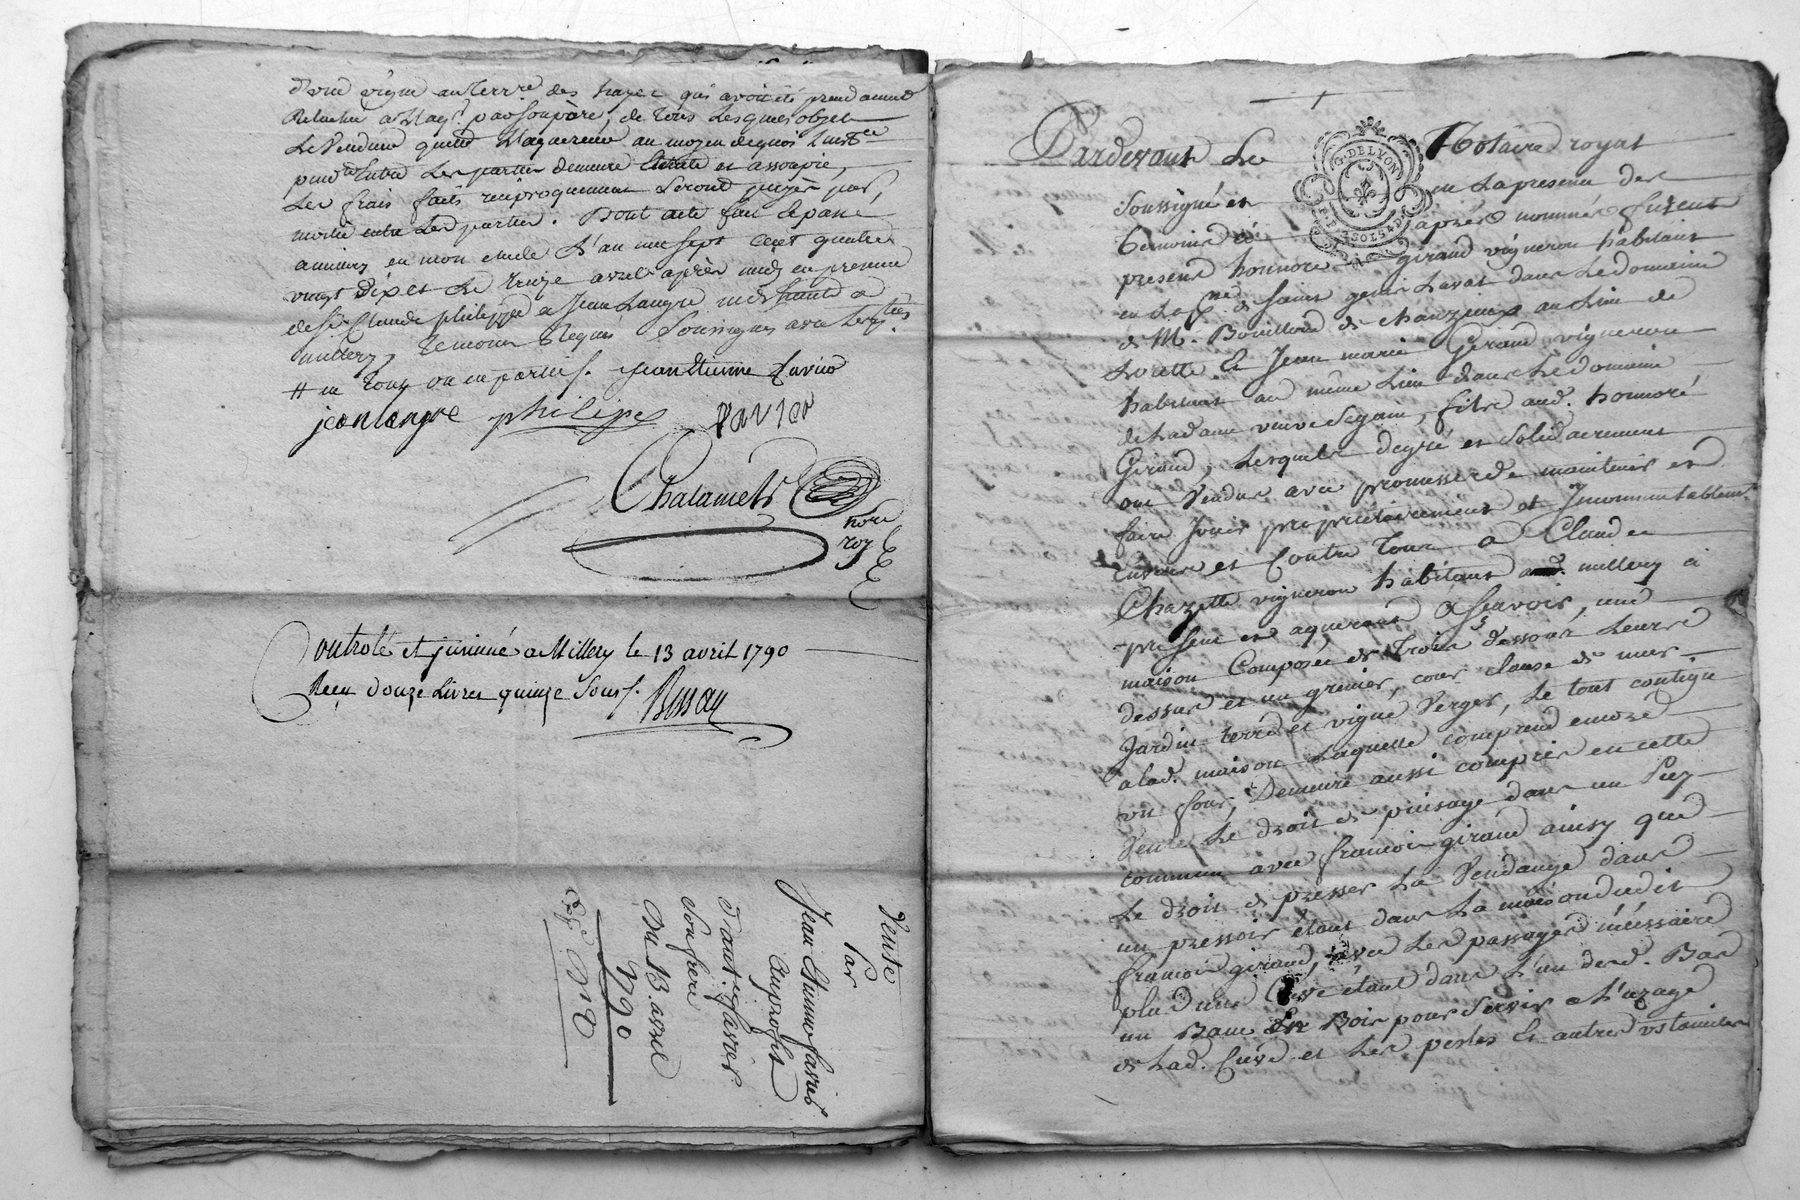 d'une vigne au terre des hayes qui avoit été prend
Relachée a par son père, de tous lesquels objets
Le Vendeur au moyen dequoi
entre Les parties demeure Eteinte et assoupie,
Les frais faits reciproquement Seront payés par
moitié entre Les parties. Dont acte fait et passé
a millery en mon etude L'an mil sept cent quatre
vingt dix et Le treize avril après midy en presence
de Sr. Claude philippe a Jean Langre a
millery, temoins Requis Soussignés avec Les parties.
Jean Etienne favier
jean langre philipe favier
Chalamel
nore
roy
Controlé et insinué a Millery le 13 avril 1790
Reçu douze Livres quinze Sous.
Vente
Par
Jean Etienne favier
Au profit
d'ant. favier
Son frere
Du 13. avril
1790
Pardevant Le Notaire royal
G. DELYON
Soussigné et en La presence des
temoins cy après nommés furent
present honnoré girand vigneron habitant
en La de Saint genis Laval dans Le domaine
de Mr. Bouilloud de chanzieux au Lieu de
Lorette Et Jean marie Girand vigneron
habitant au même Lieu dans Le domaine
de Madame veuve Seguin, fils aud. honnoré
Girand, Lesquels de gré et solidairement
ont Vendu avec promesse de maintenir et
faire Jouir propriétairement et Incommutablement
Envers et Contre Tous a Claude
Chazette vigneron habitant aud. millery a
present et aquereur a Scavoir, une
maison Composée de Trois dessous Leurs
dessus et un grenier, cour clause de murs
Jardin terre et vigne Verger, Le tout contigu
a lad. maison Laquelle comprend encore
un four, Demeure aussi compris en cette
Vente Le droit de puisage dans un Puy
commun avec francois girand ainsy que
Le droit de presser La Vendange dans
un pressoir étant dans La maison dudit
francois girand, avec Les passages nécéssaire
plus une Cuve étant dans L'un desd. Bas
un Banc de Bois pour Servir a L'uzage
de Lad. Cuve et Les portes Et autres ustanciles